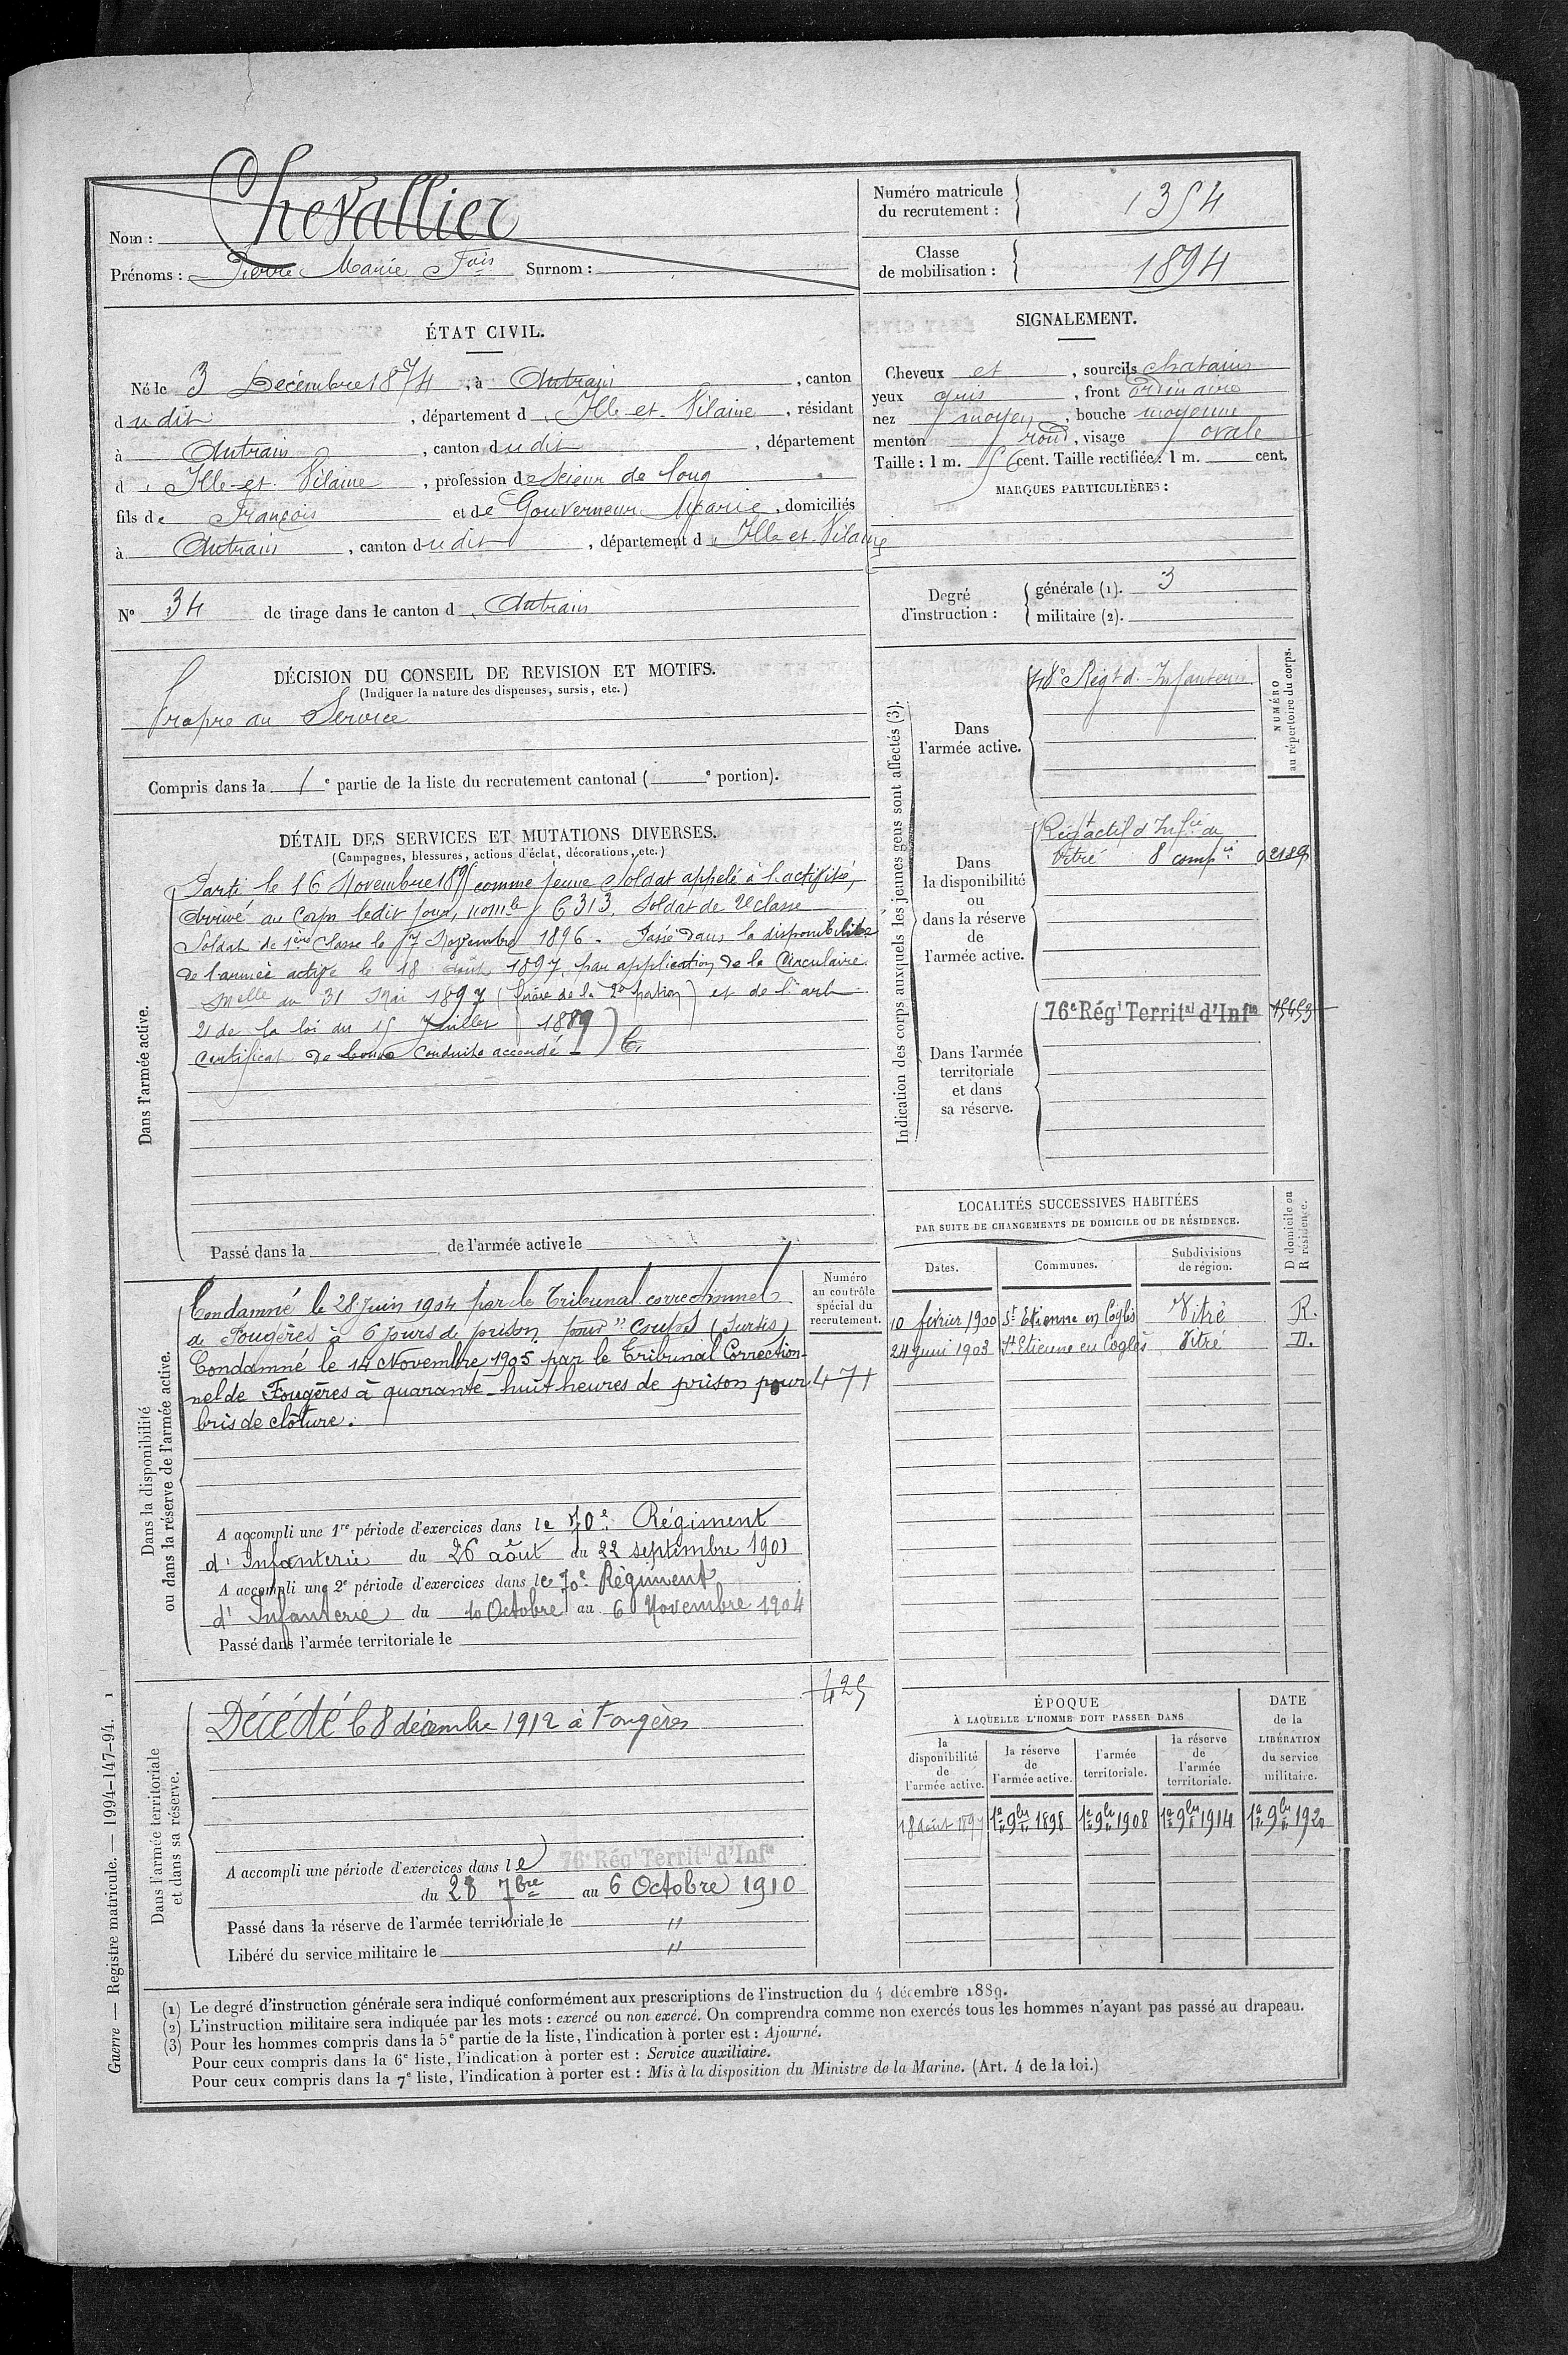 Nom : Chevallier
Prénoms : Pierre Marie Fois Surnom :
Numéro matricule du recrutement : 1354
Classe de mobilisation : 1894
ÉTAT CIVIL.
Né le 3 Décembre 1874, à Antrain, canton
dudit, département d'Ille-et-Vilaine, résidant
à Antrain, canton dudit, département
d'Ille-et-Vilaine, profession de Scieur de long
fils de François et de Gouverneur Marie, domiciliés
à Antrain, canton dudit, département d'Ille-et-Vilaine
N° 34 de tirage dans le canton d'Antrain
SIGNALEMENT.
Cheveux et, sourcils chatains
yeux gris, front ordinaire
nez moyen, bouche moyenne
menton rond, visage ovale
Taille : 1 m. 56 cent. Taille rectifiée : 1 m. cent.
MARQUES PARTICULIÈRES :
Degré d'instruction : générale (1). 3
militaire (2).
DÉCISION DU CONSEIL DE REVISION ET MOTIFS.
(Indiquer la nature des dispenses, sursis, etc.)
Propre au Service
Compris dans la 1e partie de la liste du recrutement cantonal ( e portion).
DÉTAIL DES SERVICES ET MUTATIONS DIVERSES.
(Campagnes, blessures, actions d'éclat, décorations, etc.)
Dans l'armée active.
Parti le 16 Novembre 1895 comme jeune Soldat appelé à l'activité,
Arrivé au Corps ledit jour, nomle 6313. Soldat de 2e classe
Soldat de 1ère Classe le 17 Novembre 1896. Passé dans la disponibilité
de l'armée active le 18 Août 1897, par application de la Circulaire
Melle du 31 Mai 1897 (frère de la 2e portion) et de l'art
21 de la loi du 15 Juillet 1889
Certificat de bonne conduite accordé
Passé dans la de l'armée active le
Indication des corps auxquels les jeunes gens sont affectés (3).
NUMÉRO au répertoire du corps.
Dans l'armée active.
48e Régt d'Infanterie
Dans la disponibilité ou dans la réserve de l'armée active.
Régt actif d'Infie de
Vitré 8 compie 02189
Dans l'armée territoriale et dans sa réserve.
76e Régt Territal d'Infie 15453
LOCALITÉS SUCCESSIVES HABITÉES
PAR SUITE DE CHANGEMENTS DE DOMICILE OU DE RÉSIDENCE.
Dates. Communes. Subdivisions de région. D domicile ou R résidence.
10 février 1900 St Etienne en Coglès Vitré R.
24 Juin 1903 St Etienne en Coglès Vitré D.
Dans la disponibilité ou dans la réserve de l'armée active.
Numéro au contrôle spécial du recrutement.
Condamné le 28 Juin 1904 par le Tribunal correctionnel
de Fougères à 6 jours de prison pour "coups" (sursis)
Condamné le 14 Novembre 1905 par le Tribunal Correction-
nel de Fougères à quarante-huit heures de prison pour 471
bris de clôture.
A accompli une 1re période d'exercices dans le 70e Régiment
d'Infanterie du 26 août au 22 septembre 1901
A accompli une 2e période d'exercices dans le 70e Régiment
d'Infanterie du 10 Octobre au 6 Novembre 1904
Passé dans l'armée territoriale le
Dans l'armée territoriale et dans sa réserve.
425
Décédé le 8 décembre 1912 à Fougères
A accompli une période d'exercices dans le 76e Régt Territal d'Infie
du 28 7bre au 6 Octobre 1910
Passé dans la réserve de l'armée territoriale le "
Libéré du service militaire le "
ÉPOQUE
À LAQUELLE L'HOMME DOIT PASSER DANS
la disponibilité de l'armée active. la réserve de l'armée active. l'armée territoriale. la réserve de l'armée territoriale. DATE de la LIBÉRATION du service militaire.
18 Août 1897 1er 9bre 1898 1er 9bre 1908 1er 9bre 1914 1er 9bre 1920
(1) Le degré d'instruction générale sera indiqué conformément aux prescriptions de l'instruction du 4 décembre 1889.
(2) L'instruction militaire sera indiquée par les mots : exercé ou non exercé. On comprendra comme non exercés tous les hommes n'ayant pas passé au drapeau.
(3) Pour les hommes compris dans la 5e partie de la liste, l'indication à porter est : Ajourné.
Pour ceux compris dans la 6e liste, l'indication à porter est : Service auxiliaire.
Pour ceux compris dans la 7e liste, l'indication à porter est : Mis à la disposition du Ministre de la Marine. (Art. 4 de la loi.)
Guerre — Registre matricule. — 1994-147-94. 1